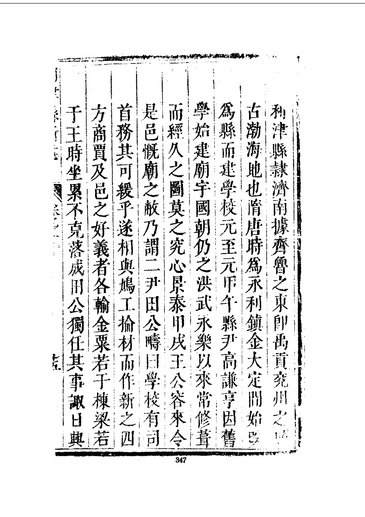 利津縣隸濟南據齊魯之東卽禹貢兖州之
古渤海地也隋唐時爲永利鎮金大定間始
爲縣而建學校元至元甲午縣尹高謙亨因舊
學始建廟宇國朝仍之洪武永樂以來常修葺
而經久之圖莫之究心景泰甲戌王公容來令
是邑慨廟之敝乃謂二尹田公疇曰學校有司
首務其可緩乎遂相與鳩工掄材而作新之四
方商賈及邑之好義者各輸金粟若干棟梁若
干王時坐累不克落成田公獨任其事諏日興
347